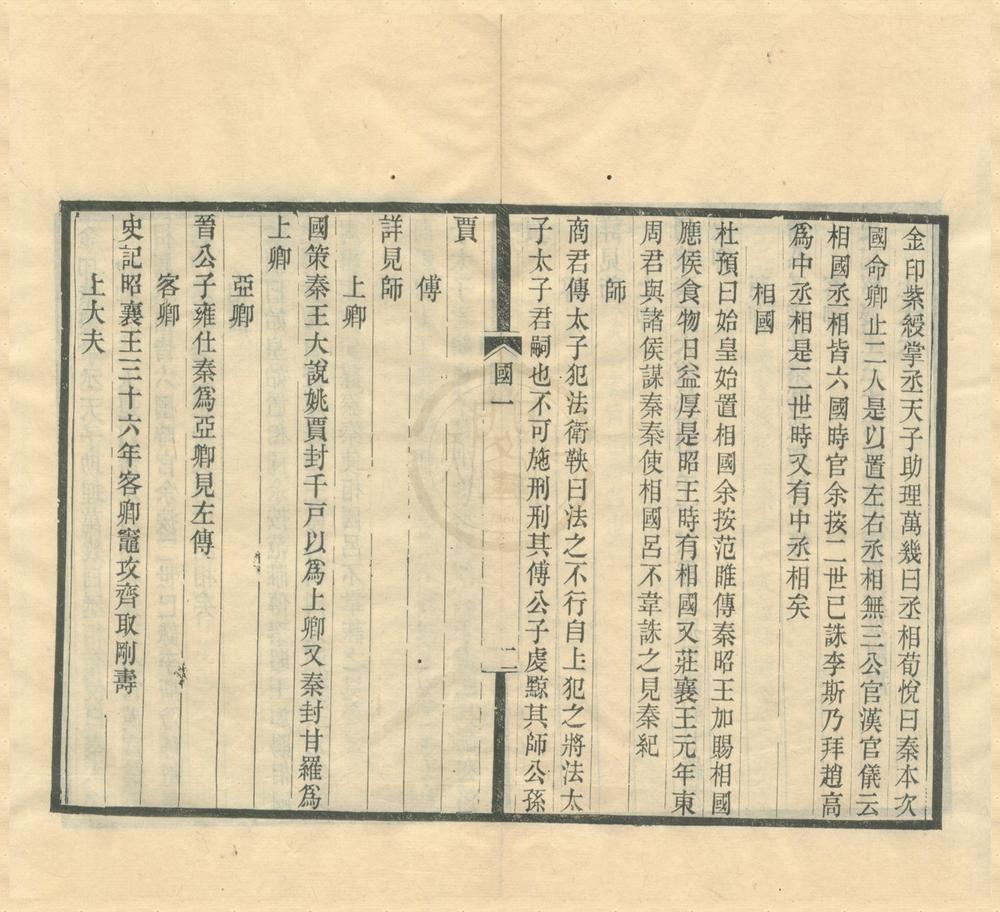 金印紫綬掌丞天子助理萬幾曰丞相荀悅曰秦本次
國命卿止二人是以置左右丞相無三公官漢官儀云
相國丞相皆六國時官余按二世已誅李斯乃拜趙高
爲中丞相是二世時又有中丞相矣
相國
杜預曰始皇始置相國余按范睢傳秦昭王加賜相國
應侯食物日益厚是昭王時有相國又莊襄王元年東
周君與諸侯謀秦秦使相國呂不韋誅之見秦紀
師
商君傳太子犯法衛鞅曰法之不行自上犯之將法太
子太子君嗣也不可施刑刑其傅公子虔黥其師公孫
國一
二
賈
傅
詳見師
上卿
國策秦王大說姚賈封千戸以爲上卿又秦封甘羅爲
上卿
亞卿
晉公子雍仕秦爲亞卿見左傳
客卿
史記昭襄王三十六年客卿竈攻齊取剛壽
上大夫